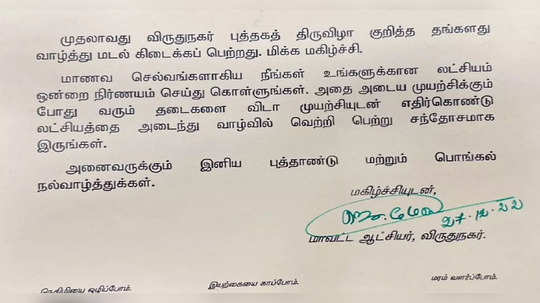 முதலாவது விருதுநகர் புத்தகத் திருவிழா குறித்த தங்களது
வாழ்த்து மடல் கிடைக்கப் பெற்றது. மிக்க மகிழ்ச்சி.
மாணவ செல்வங்களாகிய நீங்கள் உங்களுக்கான லட்சியம்
ஒன்றை நிர்ணயம் செய்து கொள்ளுங்கள். அதை அடைய முயற்சிக்கும்
போது வரும் தடைகளை விடா முயற்சியுடன் எதிர்கொண்டு
லட்சியத்தை அடைந்து வாழ்வில் வெற்றி பெற்று சந்தோசமாக
இருங்கள்.
அனைவருக்கும் இனிய புத்தாண்டு மற்றும் பொங்கல்
நல்வாழ்த்துக்கள்.
மகிழ்ச்சியுடன்,
27.12.22
மாவட்ட ஆட்சியர், விருதுநகர்.
ஒழிப்போம். இயற்கையை காப்போம். மரம் வளர்ப்போம்.